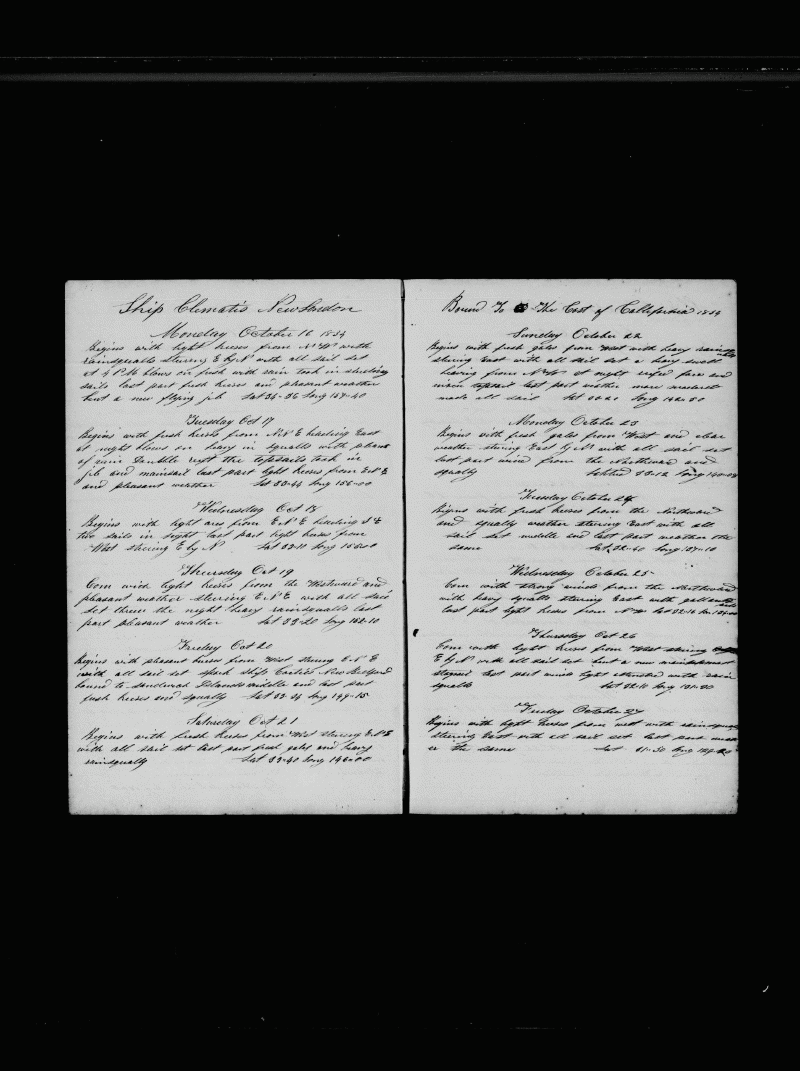 Ship Clematis New London
Monday October 16 1854
Begins with light breses from N W with
rainsqualls steering E by N with all sail set
at 4 P M blows on fresh with rain took in studing
sails last part fresh breses and pleasant weather
bent a new flying jib Lat 34-36 Long 157-40
Tuesday Oct 17
Begins with fresh breses from N N E heading East
at night blows on heavy in squalls with
of rain Doubble reeft the topsails took in
jib and mainsail last part light breses from E N E
and pleasant weather Lat 33-44 Long 156-00
Wednesday Oct 18
Begins with light ares from E N E heading S E
two sails in sight last part light breses from
West steering E by N Lat 33-11 Long 155-00
Thursday Oct 19
Com with light breses from the Westward and
pleasant weather steering E N E with all sail
set threw the night heavy rainsqualls last
part pleasant wather Lat 33-20 Long 152-10
Friday Oct 20
Begins with pleasant breses from West steering E N E
with all sail set spook ship Corties New Bedford
bound to sandwich Islands middle and last part
fresh breses and squally Lat 33-34 Long 149-15
Saturday Oct 21
Begins with fresh breses from West steering E N E
with all sail set last part fresh gales and heavy
rainsqually Lat 33-40 Long 146-00
Bound To The Cost of Callifornia 1854
Sunday October 22
Begins with fresh gales from West with heavy rainsqualls
steering East with all sail set a heavy swell
heaving from N W at night reefed fore and
main topsail last part wether more moderat
made all sail Lat Long 142-50
Monday October 23
Begins with fresh gales from West and clear
weather steering East by N with all sail set
last part wind from the Northward and
squally Lat 33-12 Long
Tuesday October 24
Begins with fresh breses from the Northward
and squally weather steering East with all
sail set middle and last part weather the
same Lat 32-40 Long 137-10
Wednesday October 25
Com with strong winds from the Northward
with heavy squalls steering East with gallantsails
last part light breses from N W Lat 32-16
Thursday Oct 26
Com with light breses from West steering
E by N with all sail set bent a new
staysail last part wind light attended with rain
squalls Lat 32-10 Long 131-30
Friday October 27
Begins with light breses from west with rainsqualls
steering East with all sail set last part weath
er the same Lat 31-50 Long